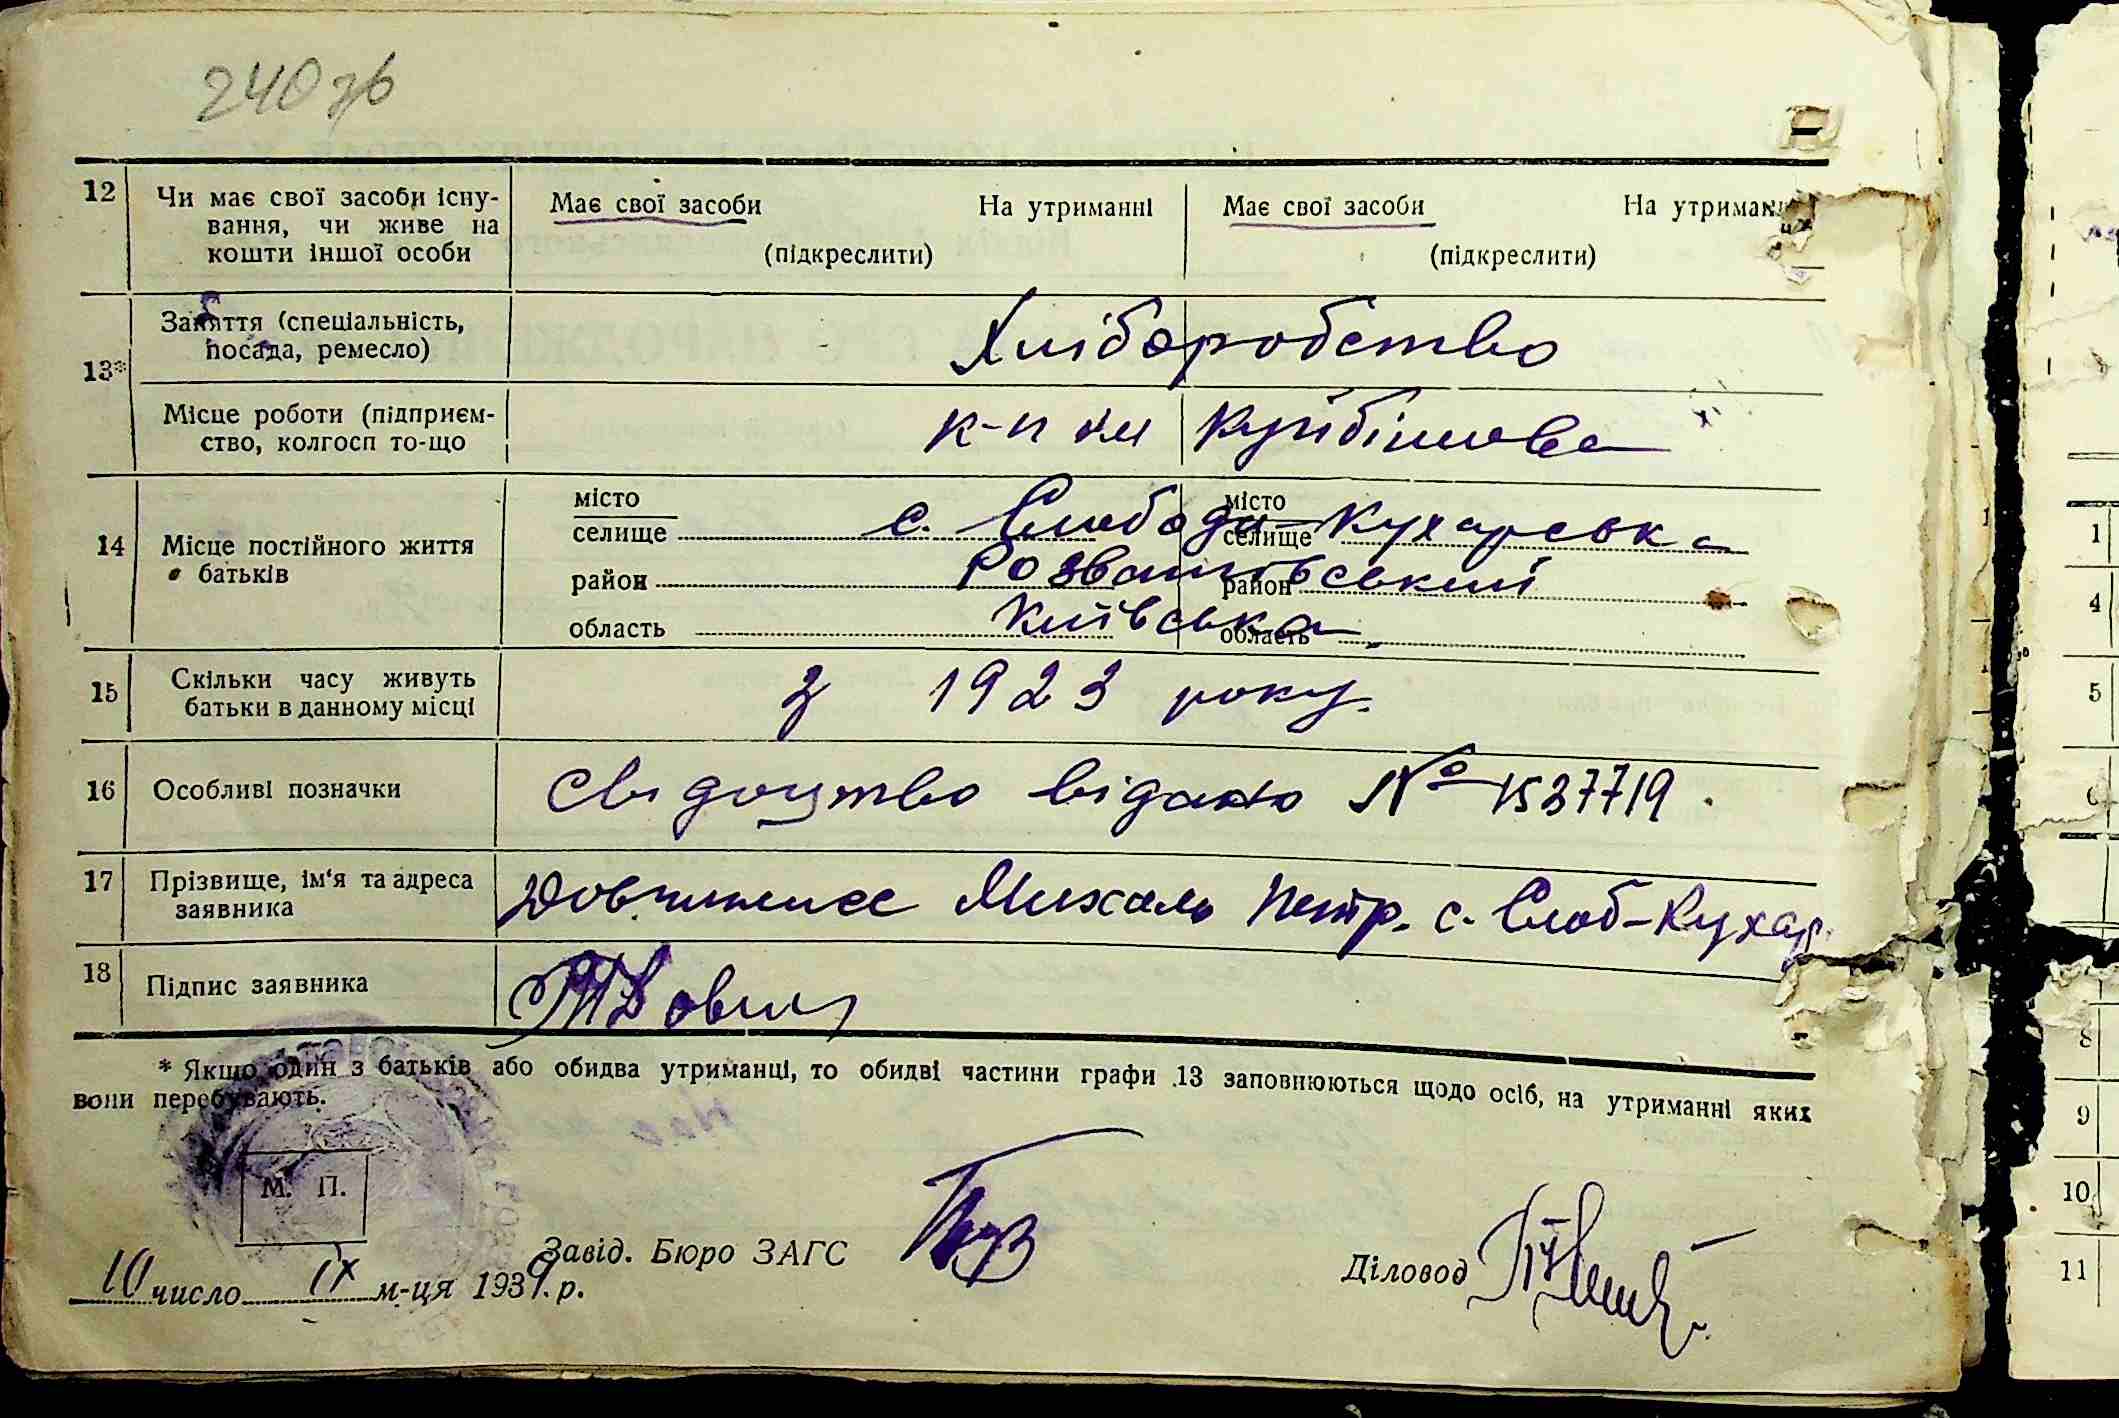 240 зв
12 Чи має свої засоби існу-
вання, чи живе на
кошти іншої особи
Має свої засоби На утриманні
(підкреслити)
Має свої засоби На утриманні
(підкреслити)
13* Заняття (спеціальність,
посада, ремесло)
Хліборобство
Місце роботи (підприєм-
ство, колгосп то-що
к-п ім Куйбішева
14 Місце постійного життя
батьків
місто
селище
с. Слобода-Кухарська
місто
селище
район Розважівський район
область Київська область
15 Скільки часу живуть
батьки в данному місці
З 1923 року.
16 Особливі позначки
Свідоцтво відано № 1537719.
17 Прізвище, ім'я та адреса
заявника
Михаль Петр. с. Слоб-Кухар.
18 Підпис заявника
* Якщо один з батьків або обидва утриманці, то обидві частини графи 13 заповнюються щодо осіб, на утриманні яких
вони перебувають.
М. П.
Завід. Бюро ЗАГС
Діловод
10 число IX м-ця 1939 р.
1
4
5
6
8
9
10
11